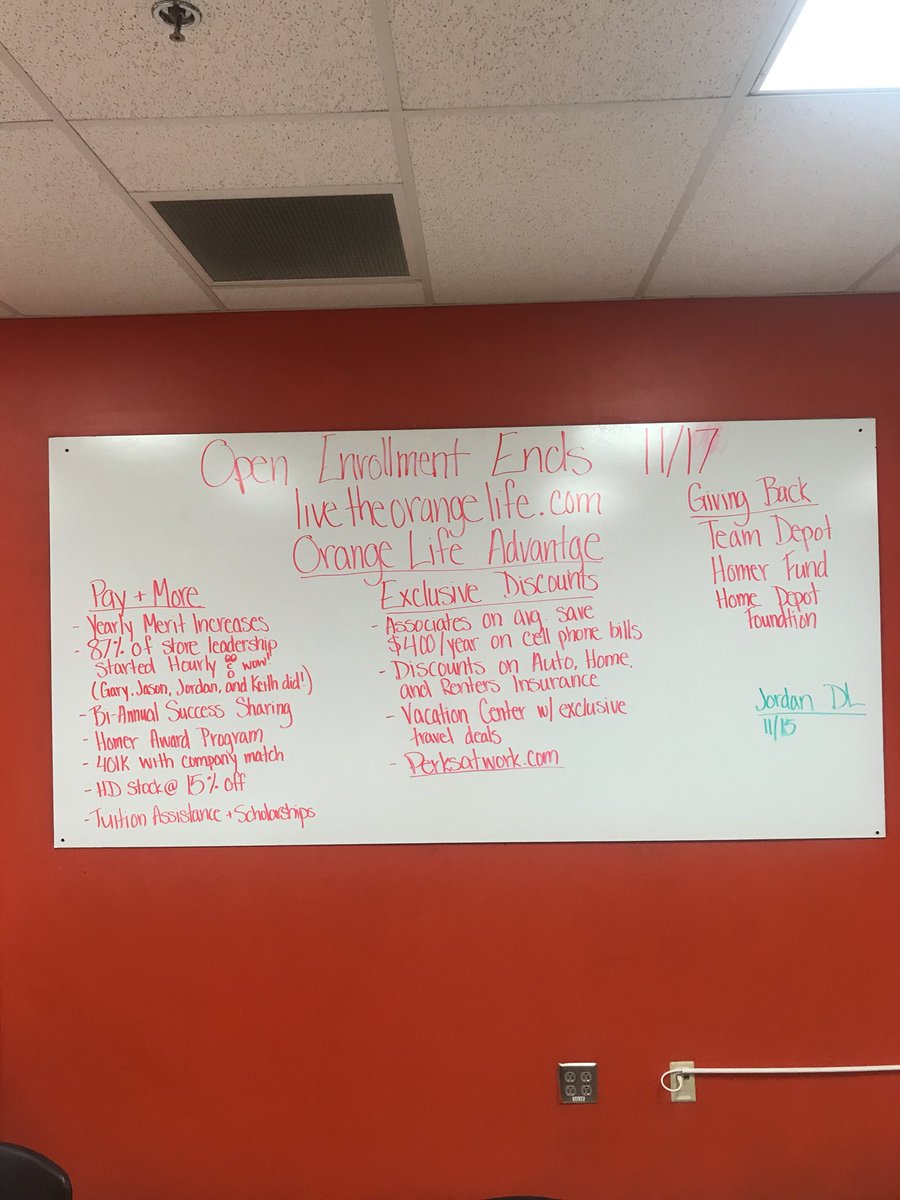 Open Enrollment Ends 11/17
livetheorangelife.com
Orange Life Advantge
Pay + More
- Yearly Merit Increases
- 87% of store leadership
started Hourly wow!
(Gary, Jason, Jordan, and Keith did!)
- Bi-Annual Success Sharing
- Homer Award Program
- 401K with company match
- HD Stock @ 15% off
- Tuition Assistance + Scholarships
Exclusive Discounts
- Associates on avg. save
$400/year on cell phone bills
- Discounts on Auto, Home,
and Renters Insurance
- Vacation Center w/ exclusive
travel deals
- Perksatwork.com
Giving Back
Team Depot
Homer Fund
Home Depot
Foundtion
Jordan DL
11/15